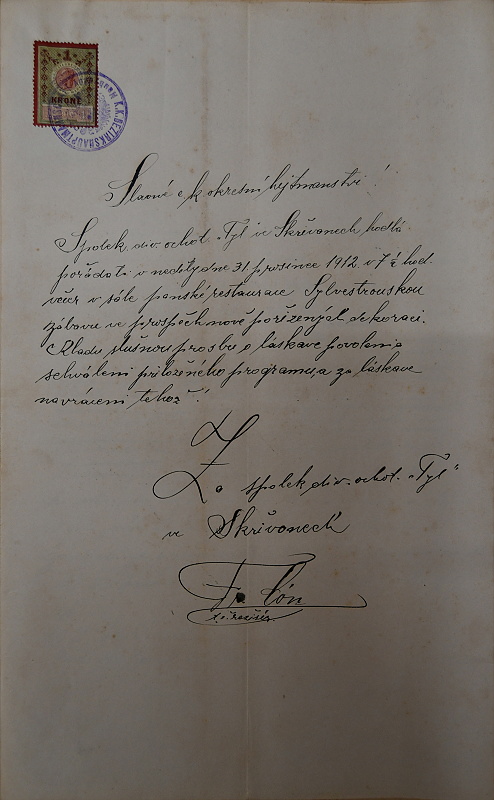 1
KRONE
K.K. BEZIRKSHAUPTMA
Slavné c. k. okresní hejtmanství!
Spolek div. ochot. „Tyl ve Skřivanech hodlá
pořádati v neděly dne 31. prosince 1912 v 7½ hod.
večer v sále panské restaurace Sylvestrouskou
zábavu ve prospěch nově pořízenýců dekorací.
Kladu slušnou prosbu o láskavé povolení a
schválení přiloženého programu, a za láskavé
navrácení tohož!
Za spolek div. ochot. „Tyl"
ve Skřivanech
Fr.
t. č. režisér.